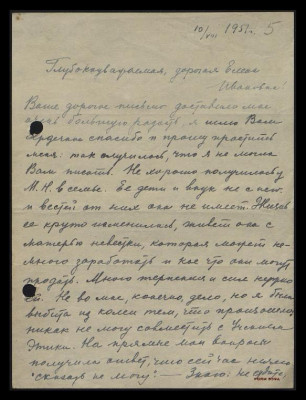 10/VII 1951 г. 5
Глубокоуважаемая, дорогая Елена
Ивановна!
Ваше дорогое письмо доставило мне
очень большую радость, я шлю Вам
сердечно спасибо и прошу простить
меня: так случилось, что я не могла
Вам писать. Не хорошо получилось у
М.Н. в семье. Ее дети и внук не с нею,
и вестей от них она не имеет. Жизнь
ее круто изменилась, живет она с
матерью невестки, которая может не
много заработать и кое что они могут
продать. Много терпения и сил нужно
ей. Не во мне, конечно, дело, но я была
выбита из колеи тем, что произошло,
никак не могу совместить с Учением
Этики. На прямые мои вопросы
получила ответ, что сейчас ничего
"сказать не могу". — Знаю: не